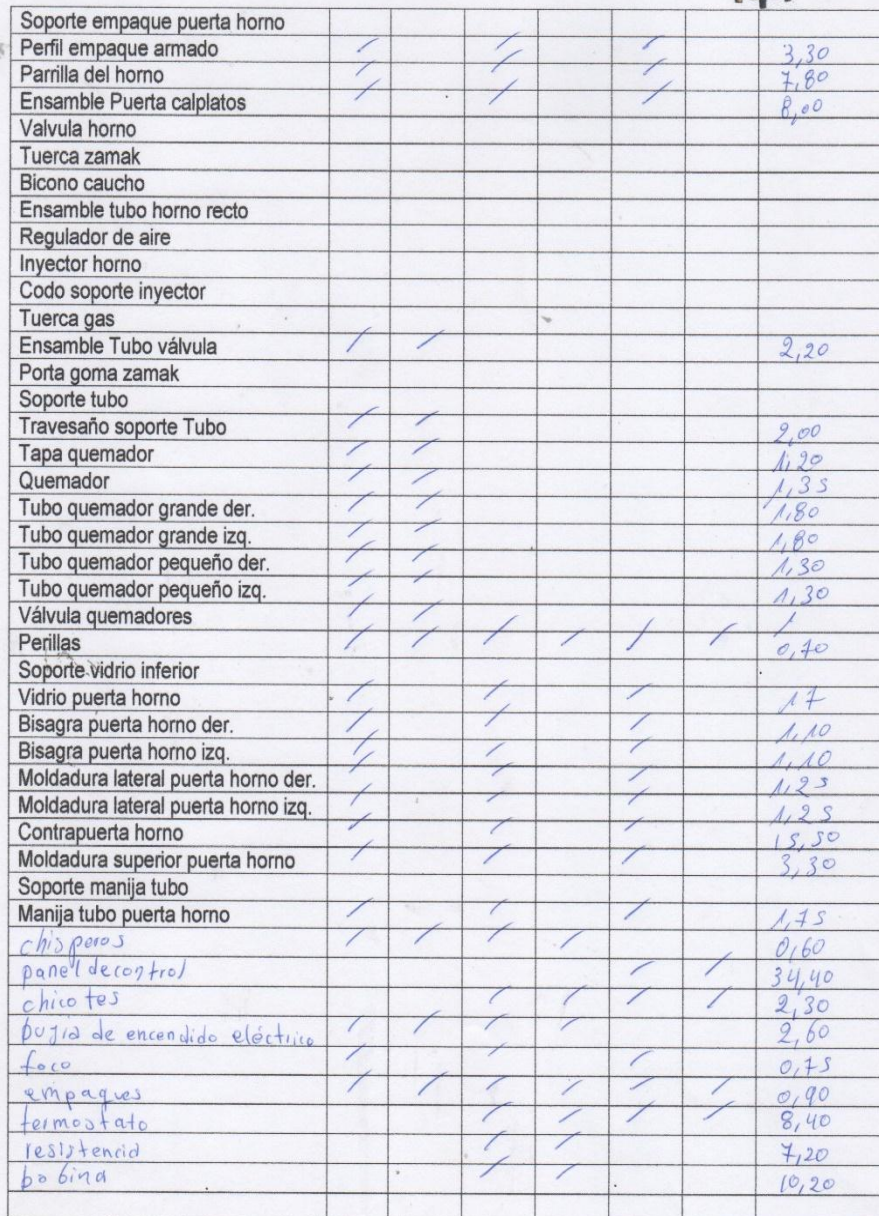 Soporte empaque puerta horno
Perfil empaque armado / / / 3,30
Parrilla del horno / / / 7,80
Ensamble Puerta calplatos / / / 8,00
Valvula horno
Tuerca zamak
Bicono caucho
Ensamble tubo horno recto
Regulador de aire
Inyector horno
Codo soporte inyector
Tuerca gas
Ensamble Tubo válvula / / 2,20
Porta goma zamak
Soporte tubo
Travesaño soporte Tubo / / 2,00
Tapa quemador / / 1,20
Quemador / / 1,35
Tubo quemador grande der. / / 1,80
Tubo quemador grande izq. / / 1,80
Tubo quemador pequeño der. / / 1,30
Tubo quemador pequeño izq. / / 1,30
Válvula quemadores / / /
Perillas / / / / / / 0,70
Soporte vidrio inferior
Vidrio puerta horno / / / 17
Bisagra puerta horno der. / / / 1,10
Bisagra puerta horno izq. / / / 1,10
Moldadura lateral puerta horno der. / / / 1,25
Moldadura lateral puerta horno izq. / / / 1,25
Contrapuerta horno / / / 15,50
Moldadura superior puerta horno / / / 3,30
Soporte manija tubo
Manija tubo puerta horno / / / 1,75
chisperos / / / / 0,60
panel de control / / 34,40
chicotes / / / / 2,30
bujia de encendido eléctrico / / / / 2,60
foco / / / 0,75
empaques / / / / / / 0,90
termostato / / / / 8,40
resistencia / / 7,20
bobina / / 10,20